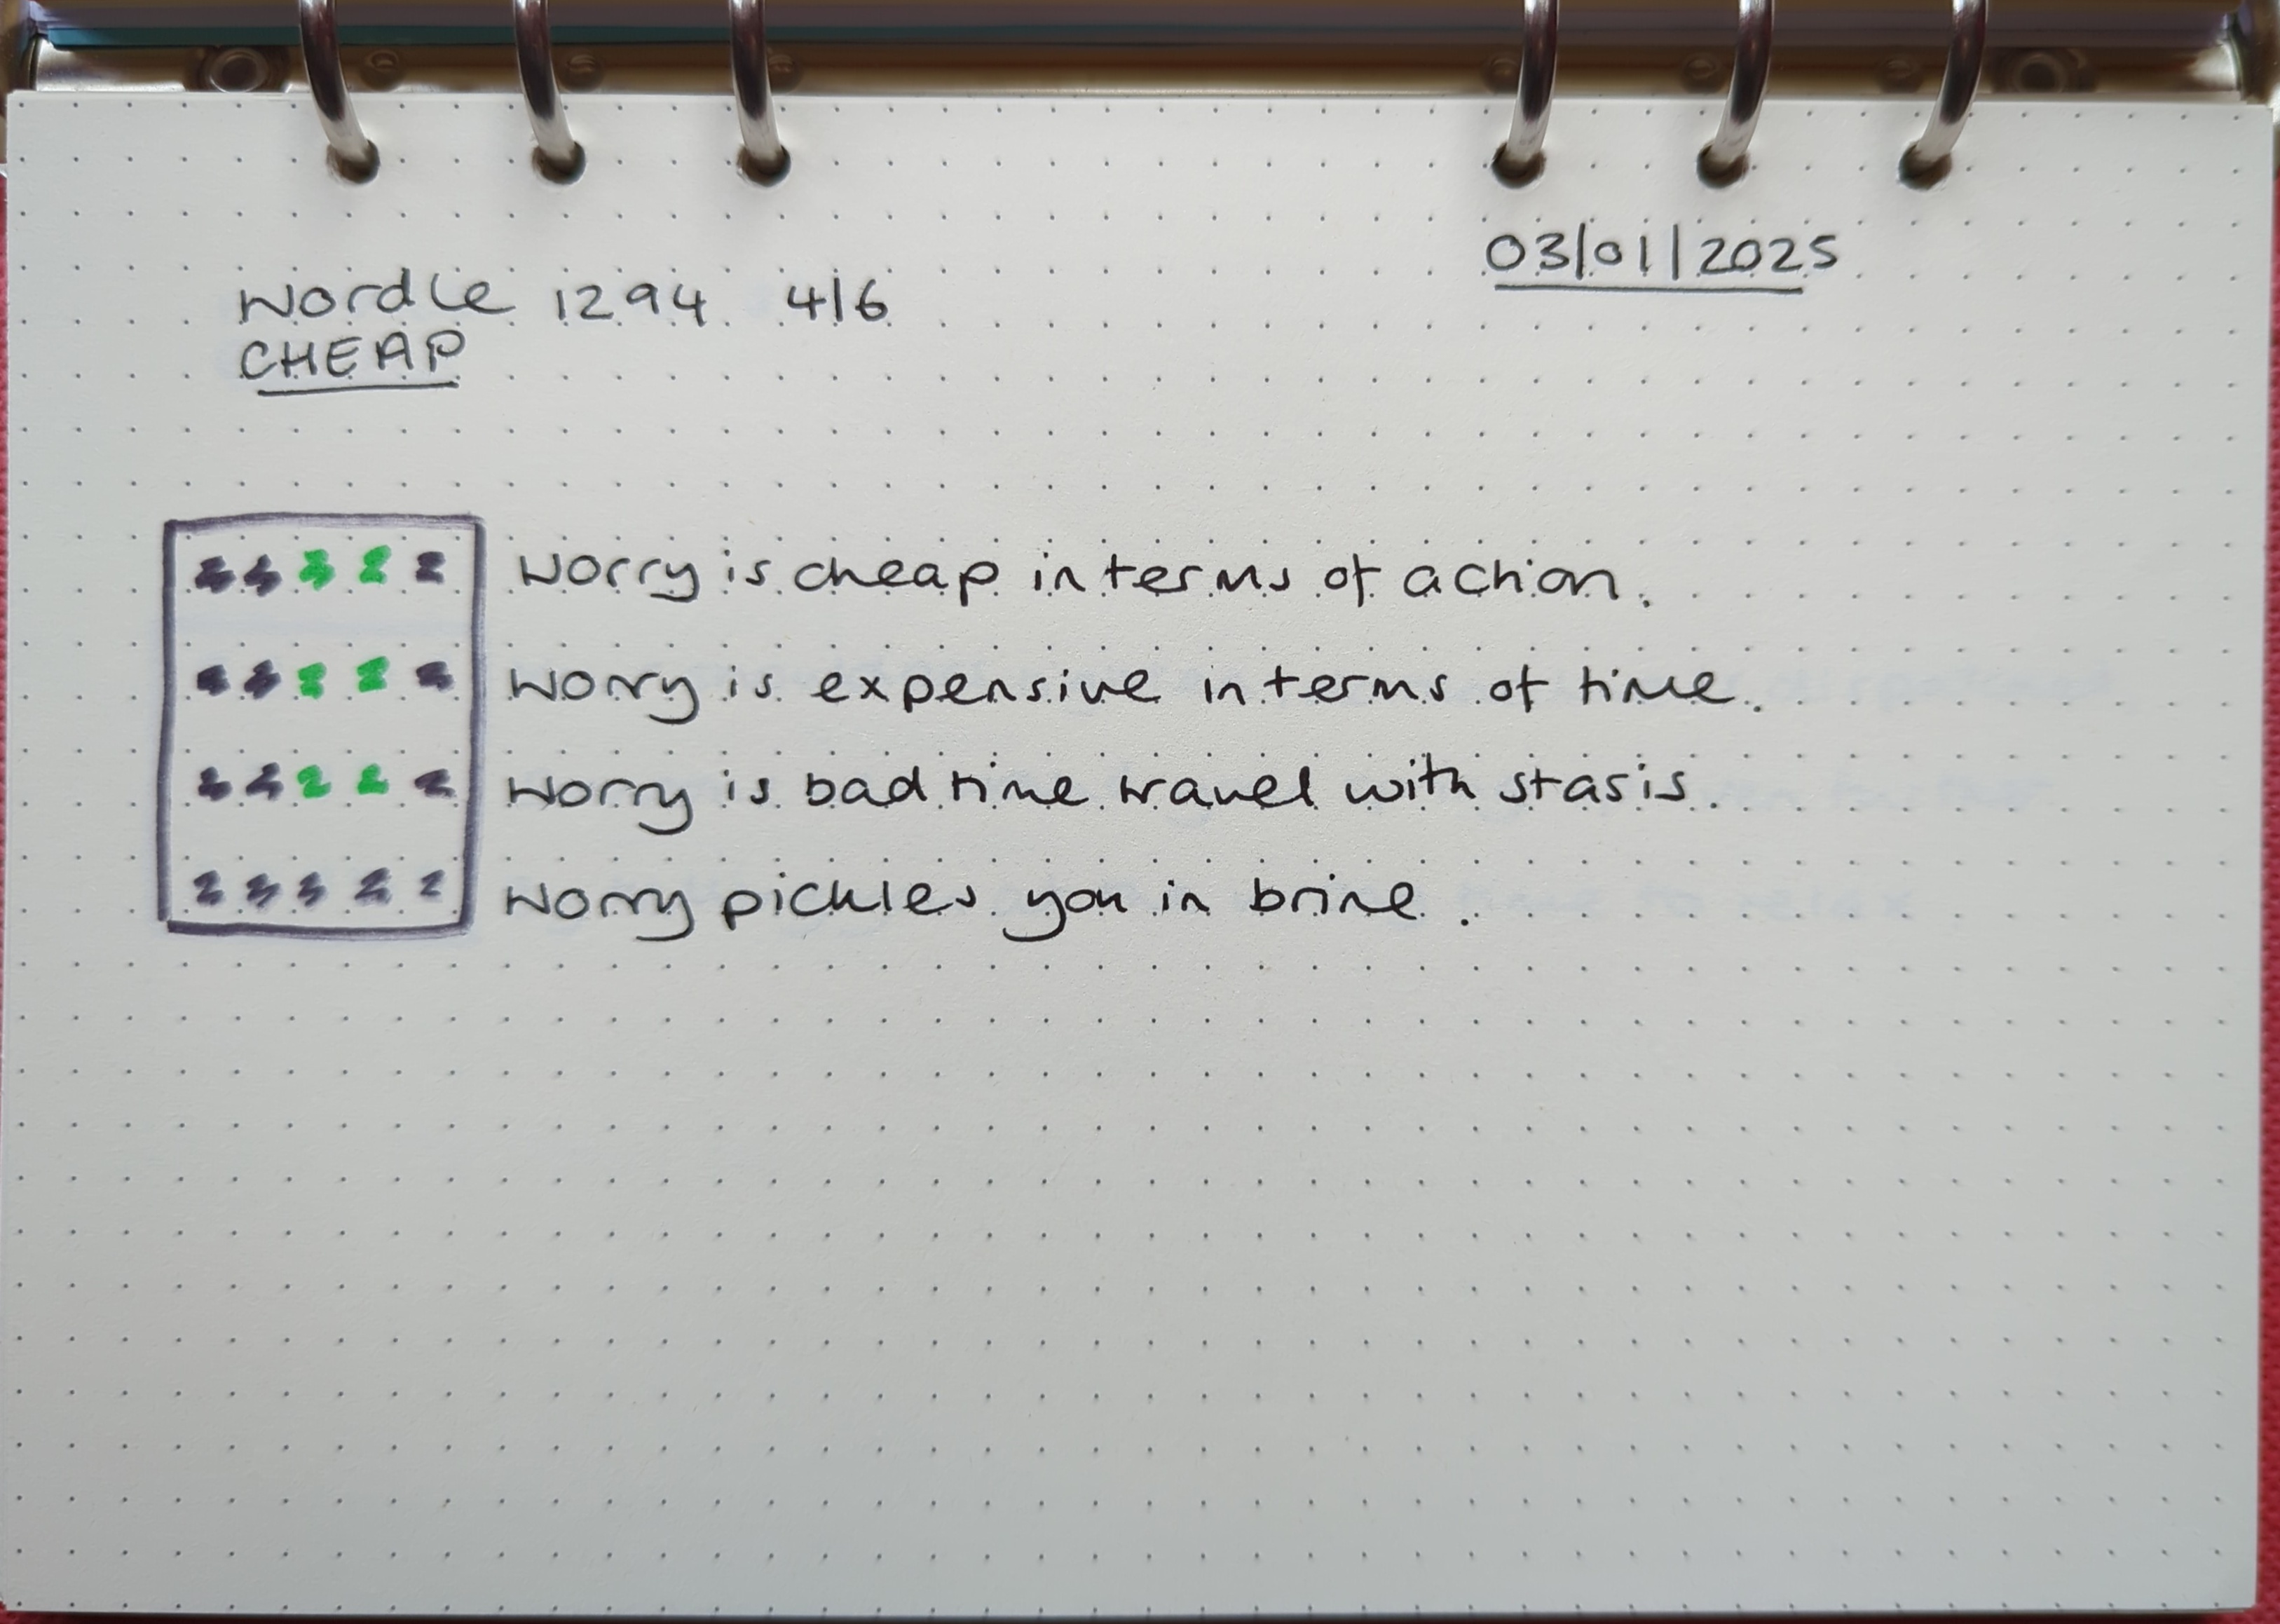 03/01/2025
Wordle 1294 4/6
CHEAP
Worry is cheap in terms of action.
Worry is expensive in terms of time.
Worry is bad time travel with stasis.
Worry pickles you in brine.